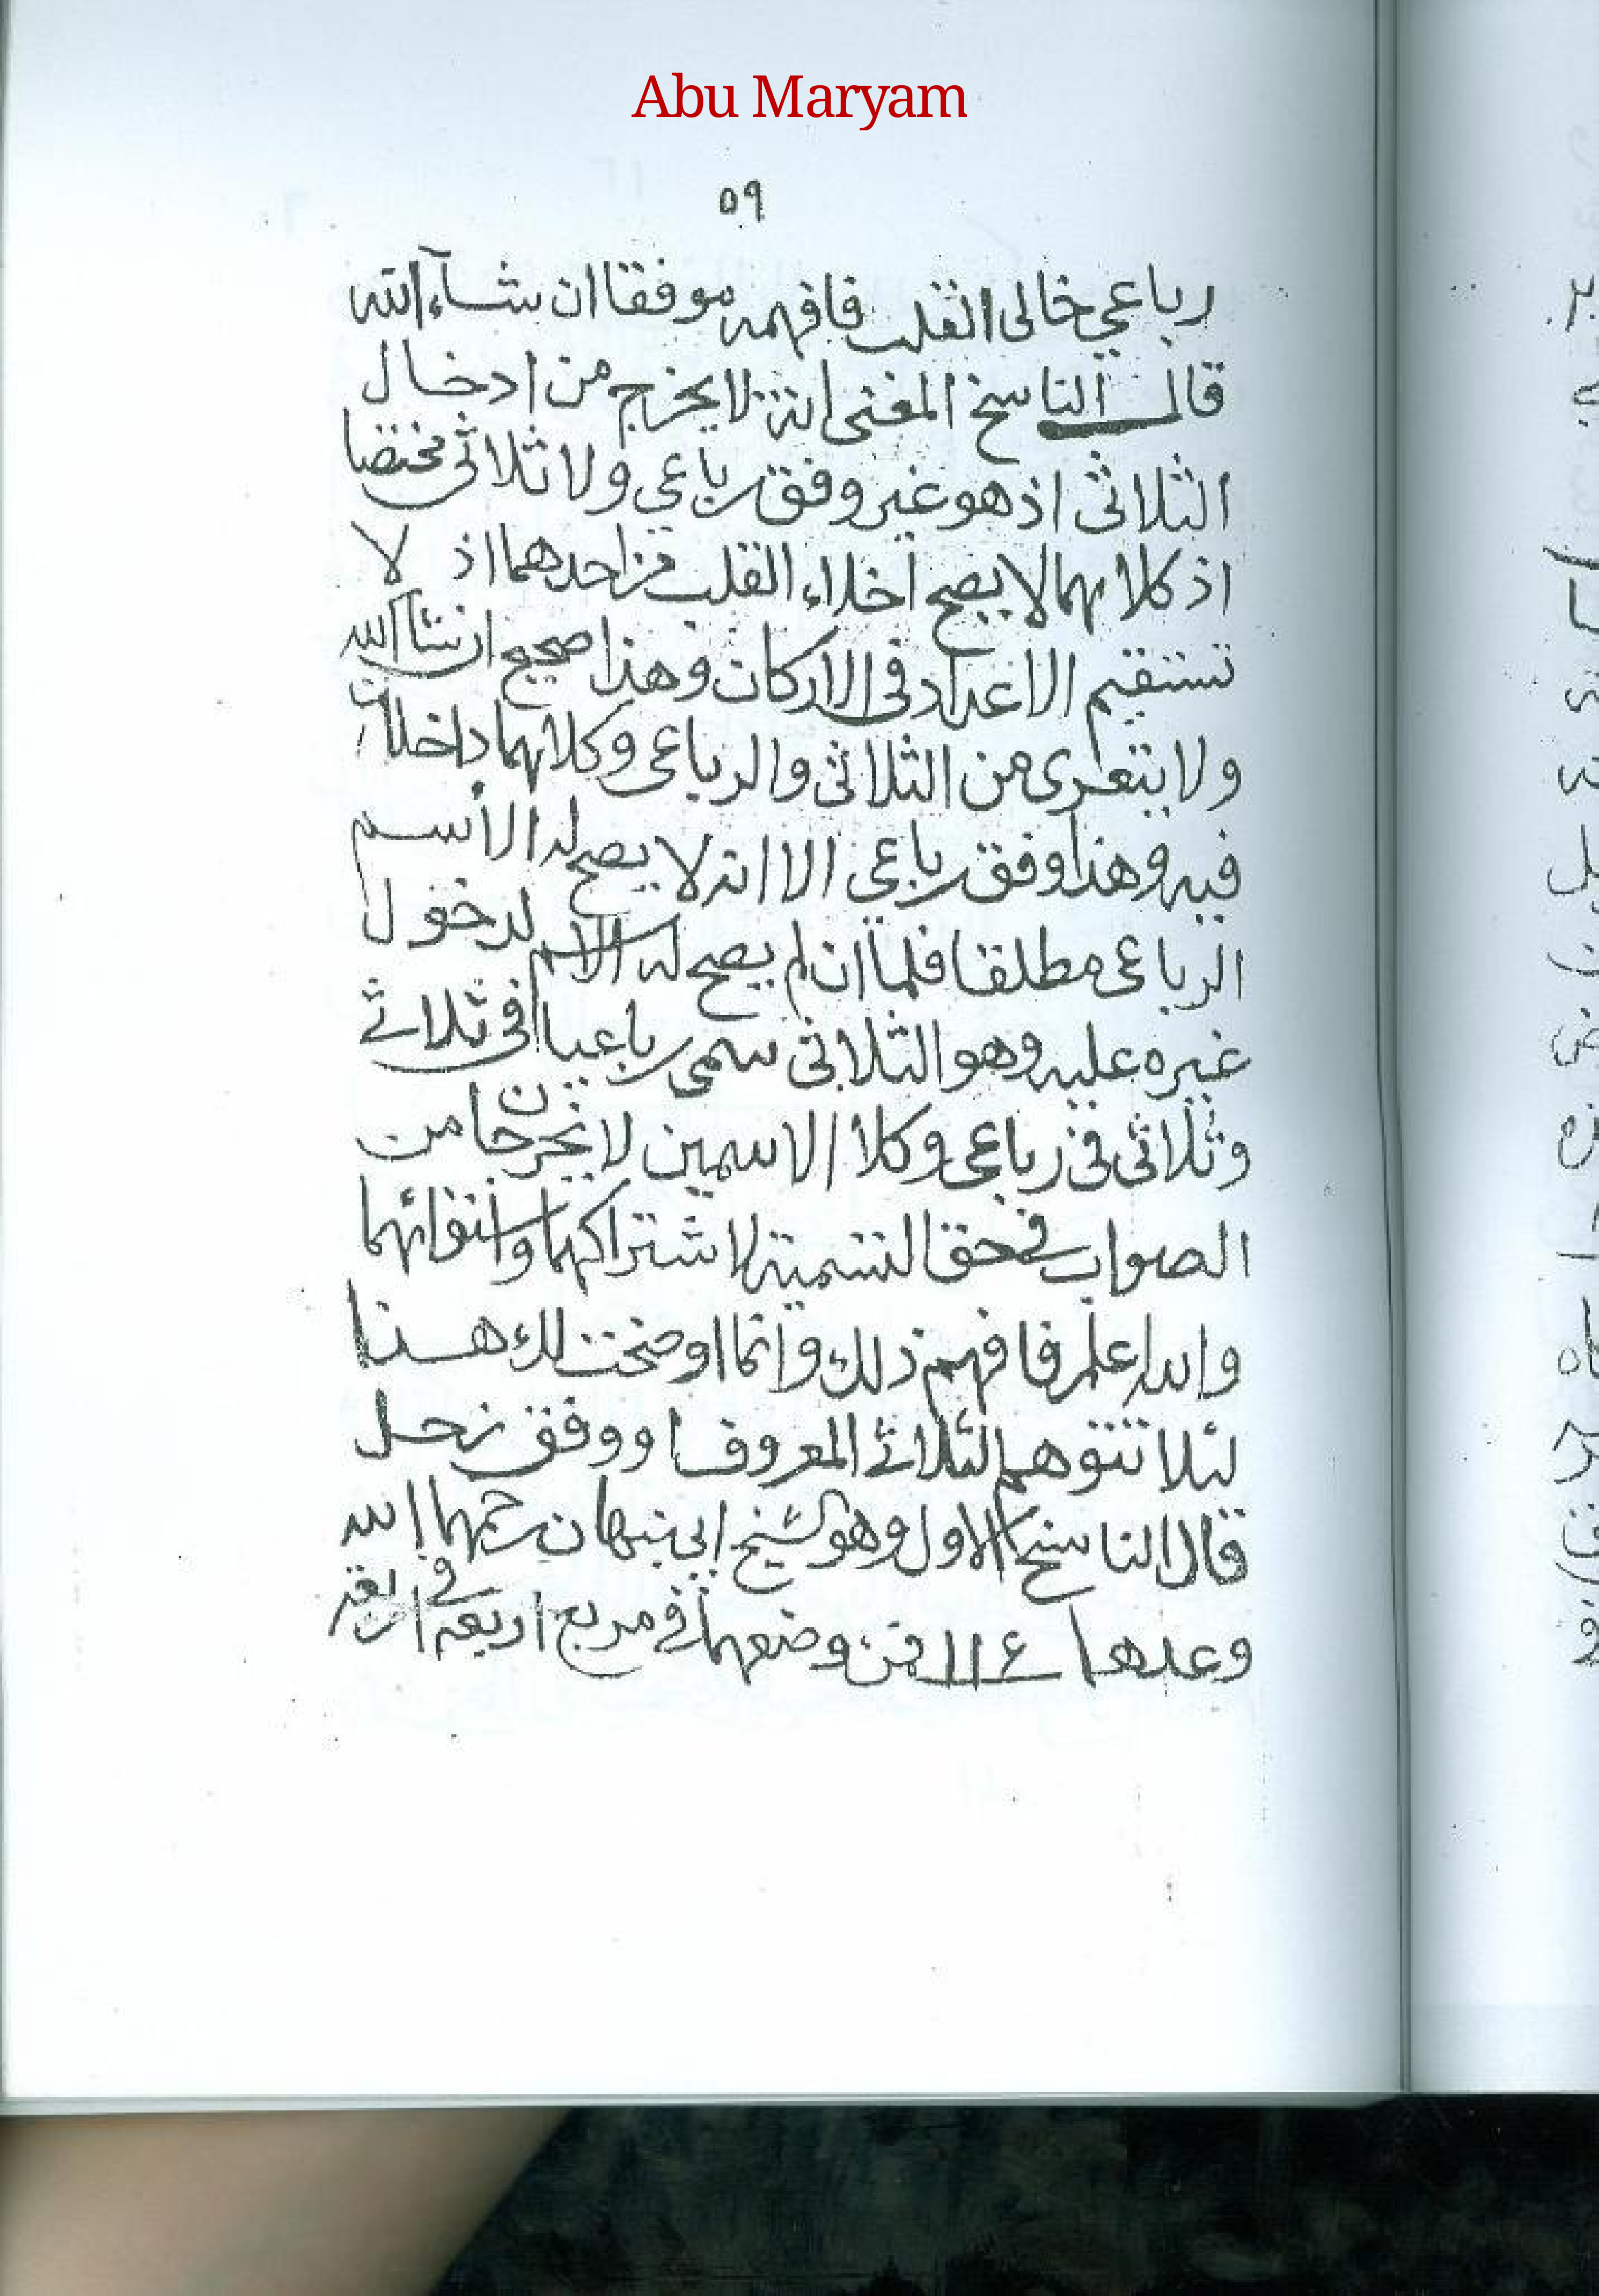 Abu Maryam
٥٩
رباعي خالى القلب فافهمه موفقا ان شآء الله
قال الناسخ المعنى انه لا يخرج من ادخال
الثلاثى اذ هو غير وفق رباعي ولا ثلاثى مختصا
اذ كلاهما لا يصح اخلاء القلب من احدهما اذ لا
تستقيم الاعداد فى الاركان وهذا صحيح ان شآ الله
ولا يتعرى من الثلاثى والرباعى وكلاهما داخلان
فيه وهذا وفق رباعى الا انه لا يصح له الأسم
الرباعى مطلقا فلما ان لم يصح له الاسم لدخول
غيره عليه وهو الثلاثى سمى رباعيا فى ثلاثي
وثلاثى فى رباعى وكلا الاسمين لا يخرجان من
الصواب فى حق التسمية لاشتراكهما واستوائهما
والله اعلم فافهم ذلك وانما اوضحت لك هذا
لئلا تتوهم الثلاثي المعروف او وفق زحل
قال الناسخ الاول وهو الشيخ ابى نبهان رحمهما الله
وعدها ١١٤ فمن وضعهما فى مربع اربعه فى اربعة